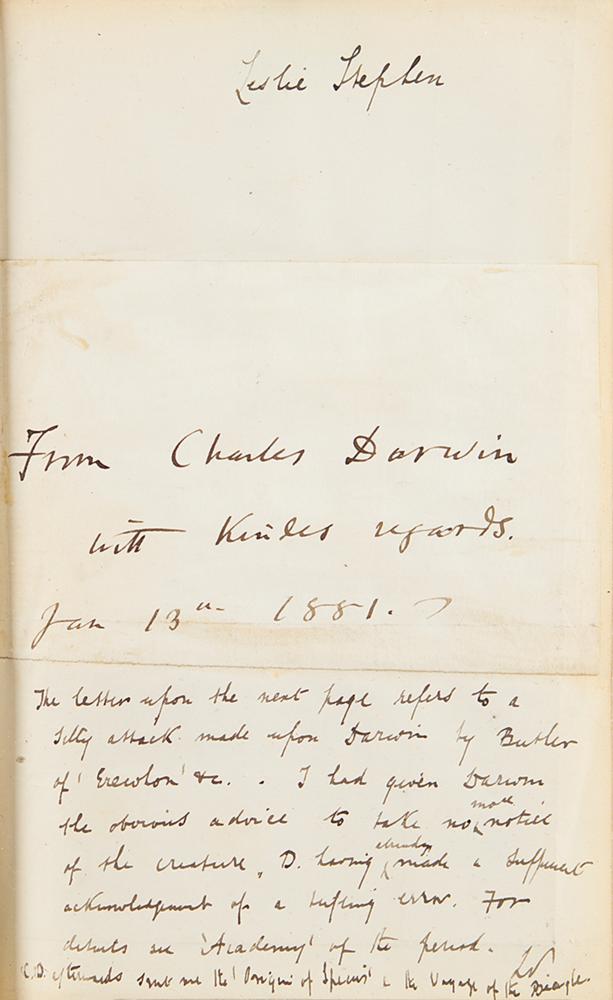 Leslie Stephen
From Charles Darwin
with kindest regards.
Jan 13th 1881.
The letter upon the next page refers to a
silly attack made upon Darwin by Butler
of 'Erewhon' &c. . I had given Darwin
the obvious advice to take no more notice
of the creature, D. having already made a sufficient
acknowledgement of a trifling error. For
details see 'Academy' of the period.
LS
C.D. afterwards sent me the 'Origin of Species' & the Voyage of the Beagle.